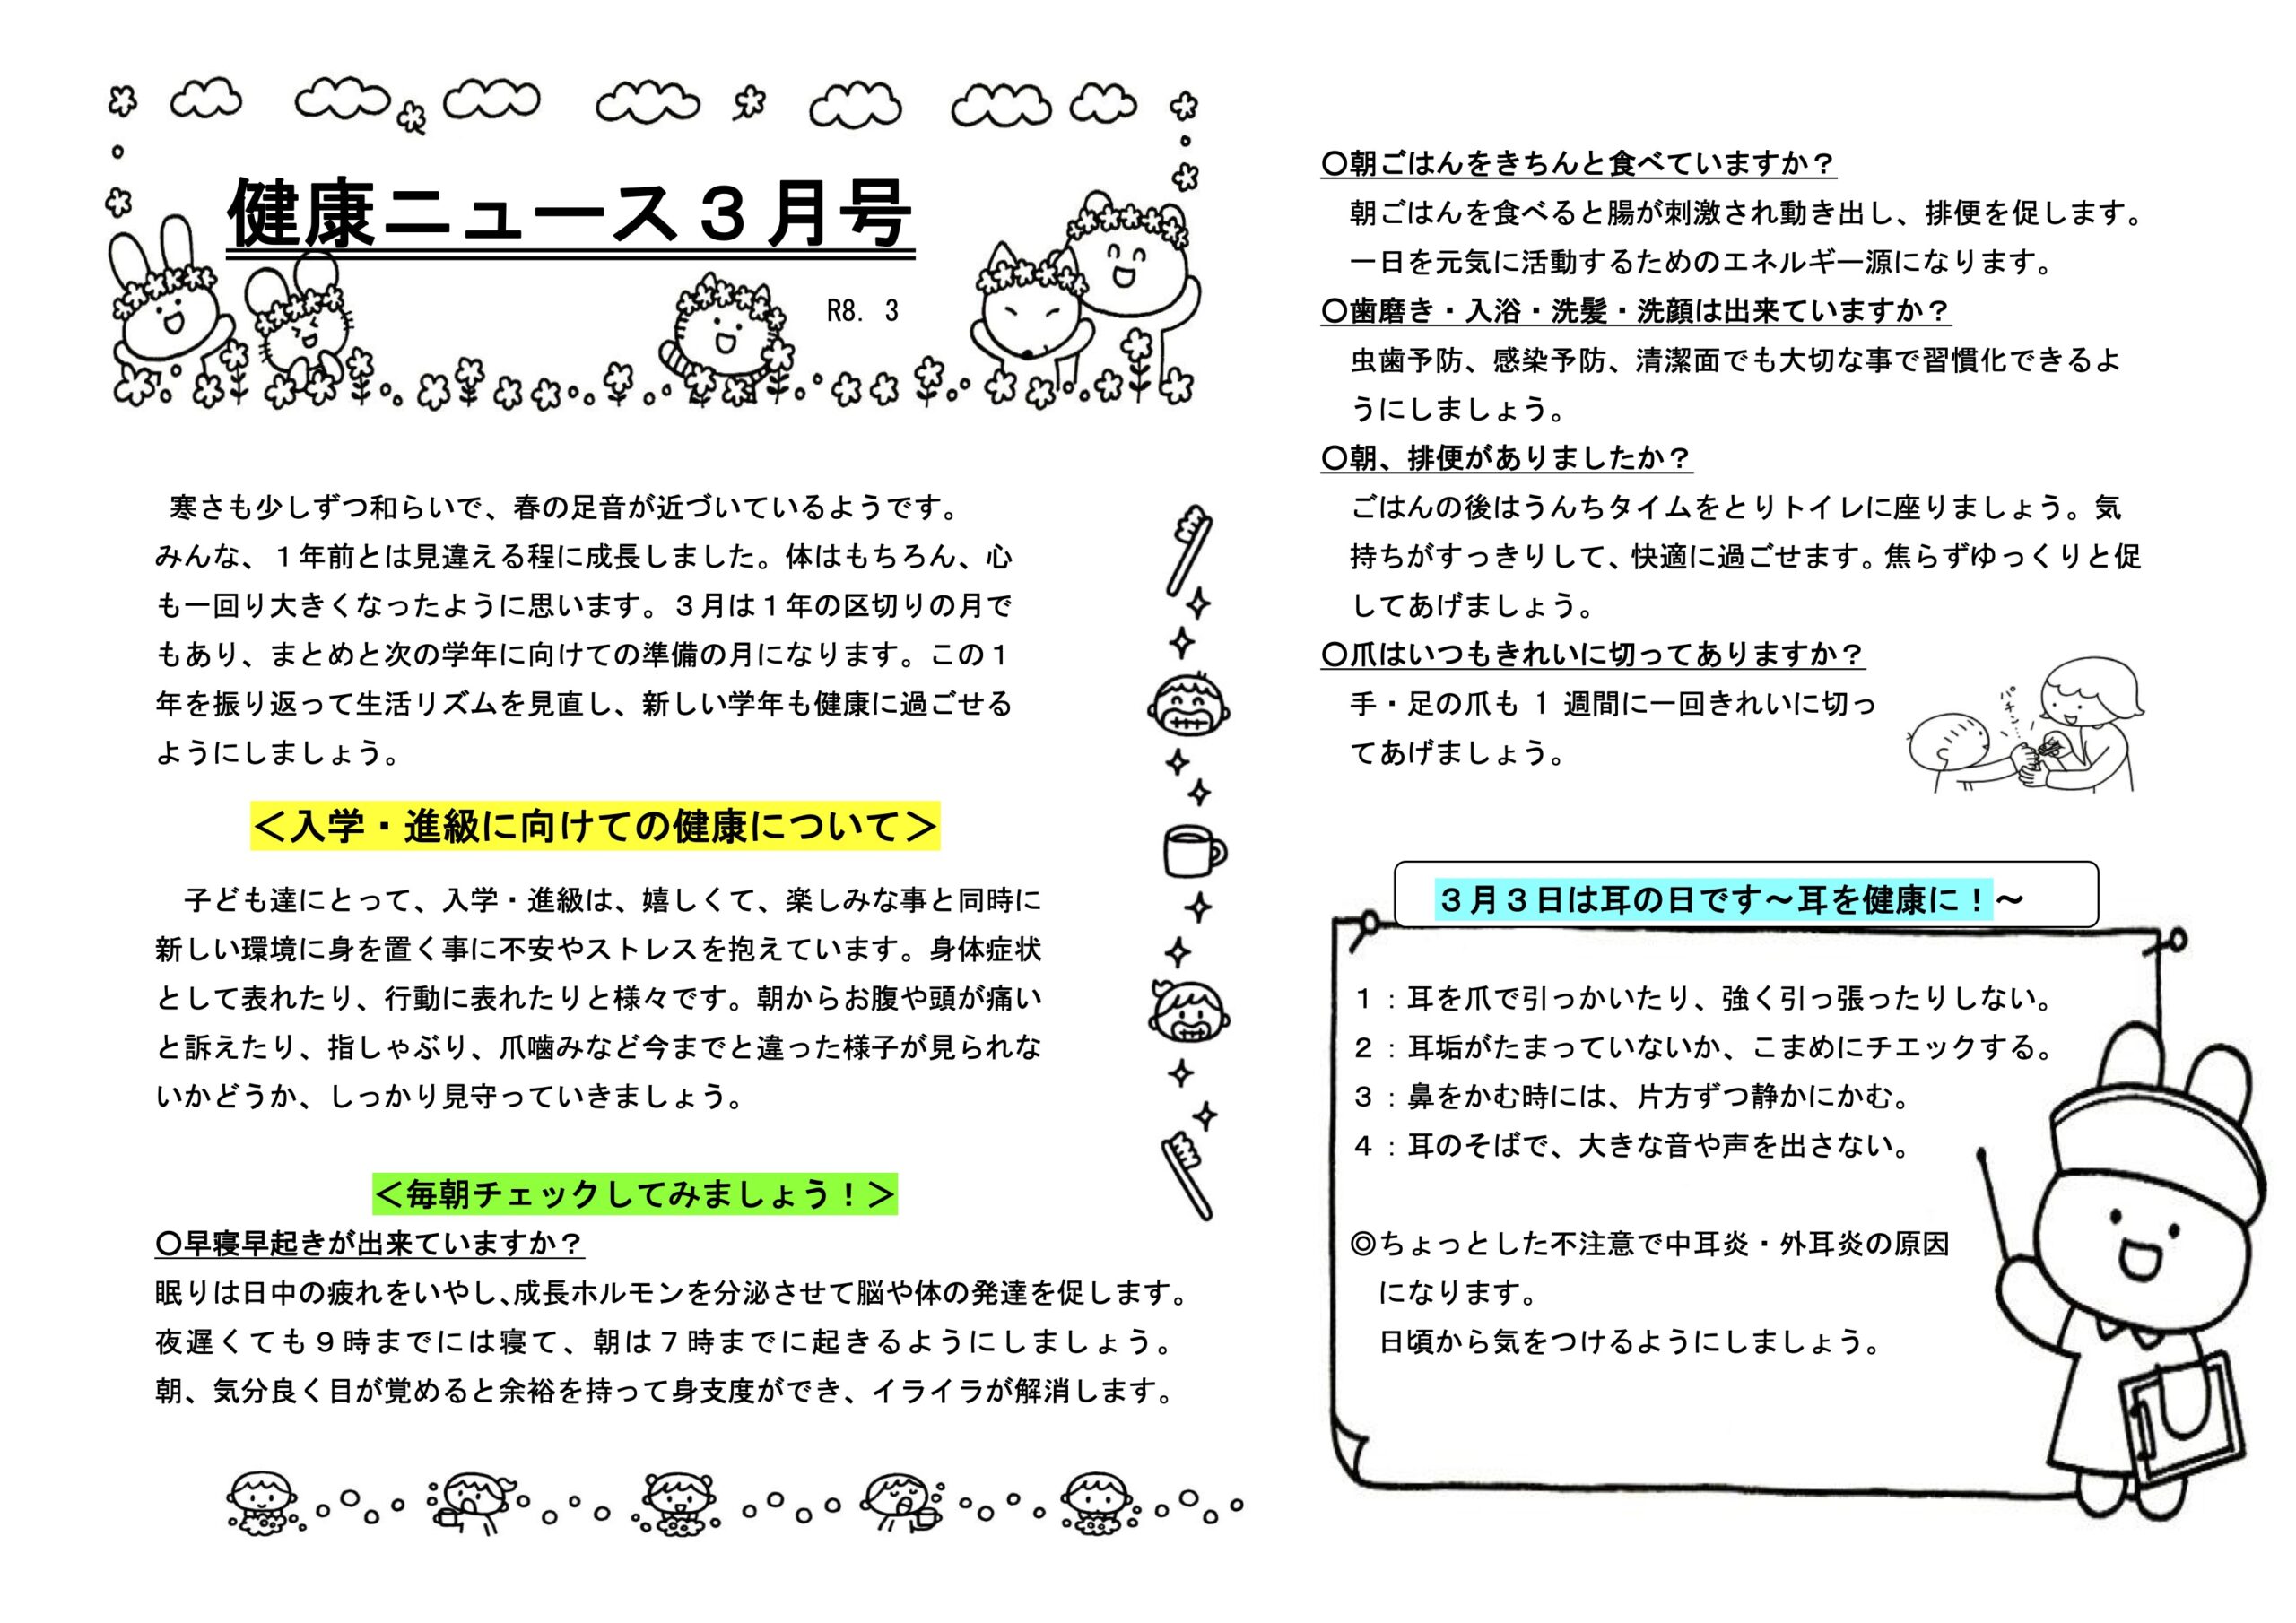 健康ニュース３月号
R8. 3
寒さも少しずつ和らいで、春の足音が近づいているようです。
みんな、１年前とは見違える程に成長しました。体はもちろん、心
も一回り大きくなったように思います。３月は１年の区切りの月で
もあり、まとめと次の学年に向けての準備の月になります。この１
年を振り返って生活リズムを見直し、新しい学年も健康に過ごせる
ようにしましょう。
＜入学・進級に向けての健康について＞
子ども達にとって、入学・進級は、嬉しくて、楽しみな事と同時に
新しい環境に身を置く事に不安やストレスを抱えています。身体症状
として表れたり、行動に表れたりと様々です。朝からお腹や頭が痛い
と訴えたり、指しゃぶり、爪噛みなど今までと違った様子が見られな
いかどうか、しっかり見守っていきましょう。
＜毎朝チェックしてみましょう！＞
〇早寝早起きが出来ていますか？
眠りは日中の疲れをいやし、成長ホルモンを分泌させて脳や体の発達を促します。
夜遅くても９時までには寝て、朝は７時までに起きるようにしましょう。
朝、気分良く目が覚めると余裕を持って身支度ができ、イライラが解消します。
〇朝ごはんをきちんと食べていますか？
朝ごはんを食べると腸が刺激され動き出し、排便を促します。
一日を元気に活動するためのエネルギー源になります。
〇歯磨き・入浴・洗髪・洗顔は出来ていますか？
虫歯予防、感染予防、清潔面でも大切な事で習慣化できるよ
うにしましょう。
〇朝、排便がありましたか？
ごはんの後はうんちタイムをとりトイレに座りましょう。気
持ちがすっきりして、快適に過ごせます。焦らずゆっくりと促
してあげましょう。
〇爪はいつもきれいに切ってありますか？
手・足の爪も 1 週間に一回きれいに切っ
てあげましょう。
パチン
３月３日は耳の日です～耳を健康に！～
１：耳を爪で引っかいたり、強く引っ張ったりしない。
２：耳垢がたまっていないか、こまめにチエックする。
３：鼻をかむ時には、片方ずつ静かにかむ。
４：耳のそばで、大きな音や声を出さない。
◎ちょっとした不注意で中耳炎・外耳炎の原因
になります。
日頃から気をつけるようにしましょう。